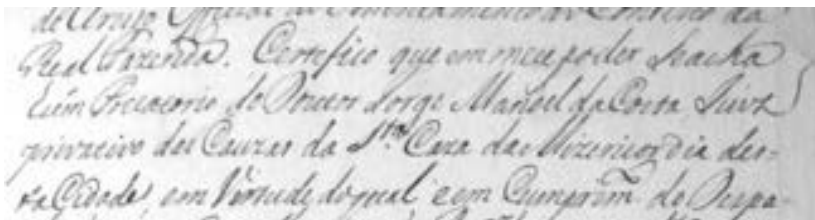 de Araujo Official do
Real Fazenda. Certefico que em meu poder seacha
hum Precatorio do Doutor Jorge Manoel da Costa Juiz
privativo das Cauzas da S.ta Caza da Mizericordia des-
ta Cidade, em Virtude do qual, e em Cumprim.to do Despa-